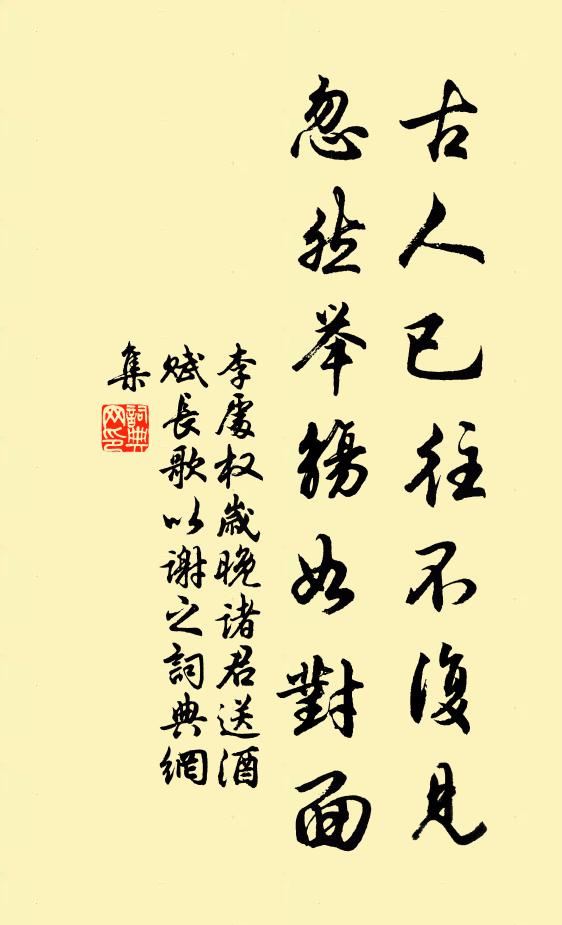 古人已往不復見
忽然举觴如對面
李處权歲晚诸君送酒
赋長歌以谢之詞典網
集
詞典
网印